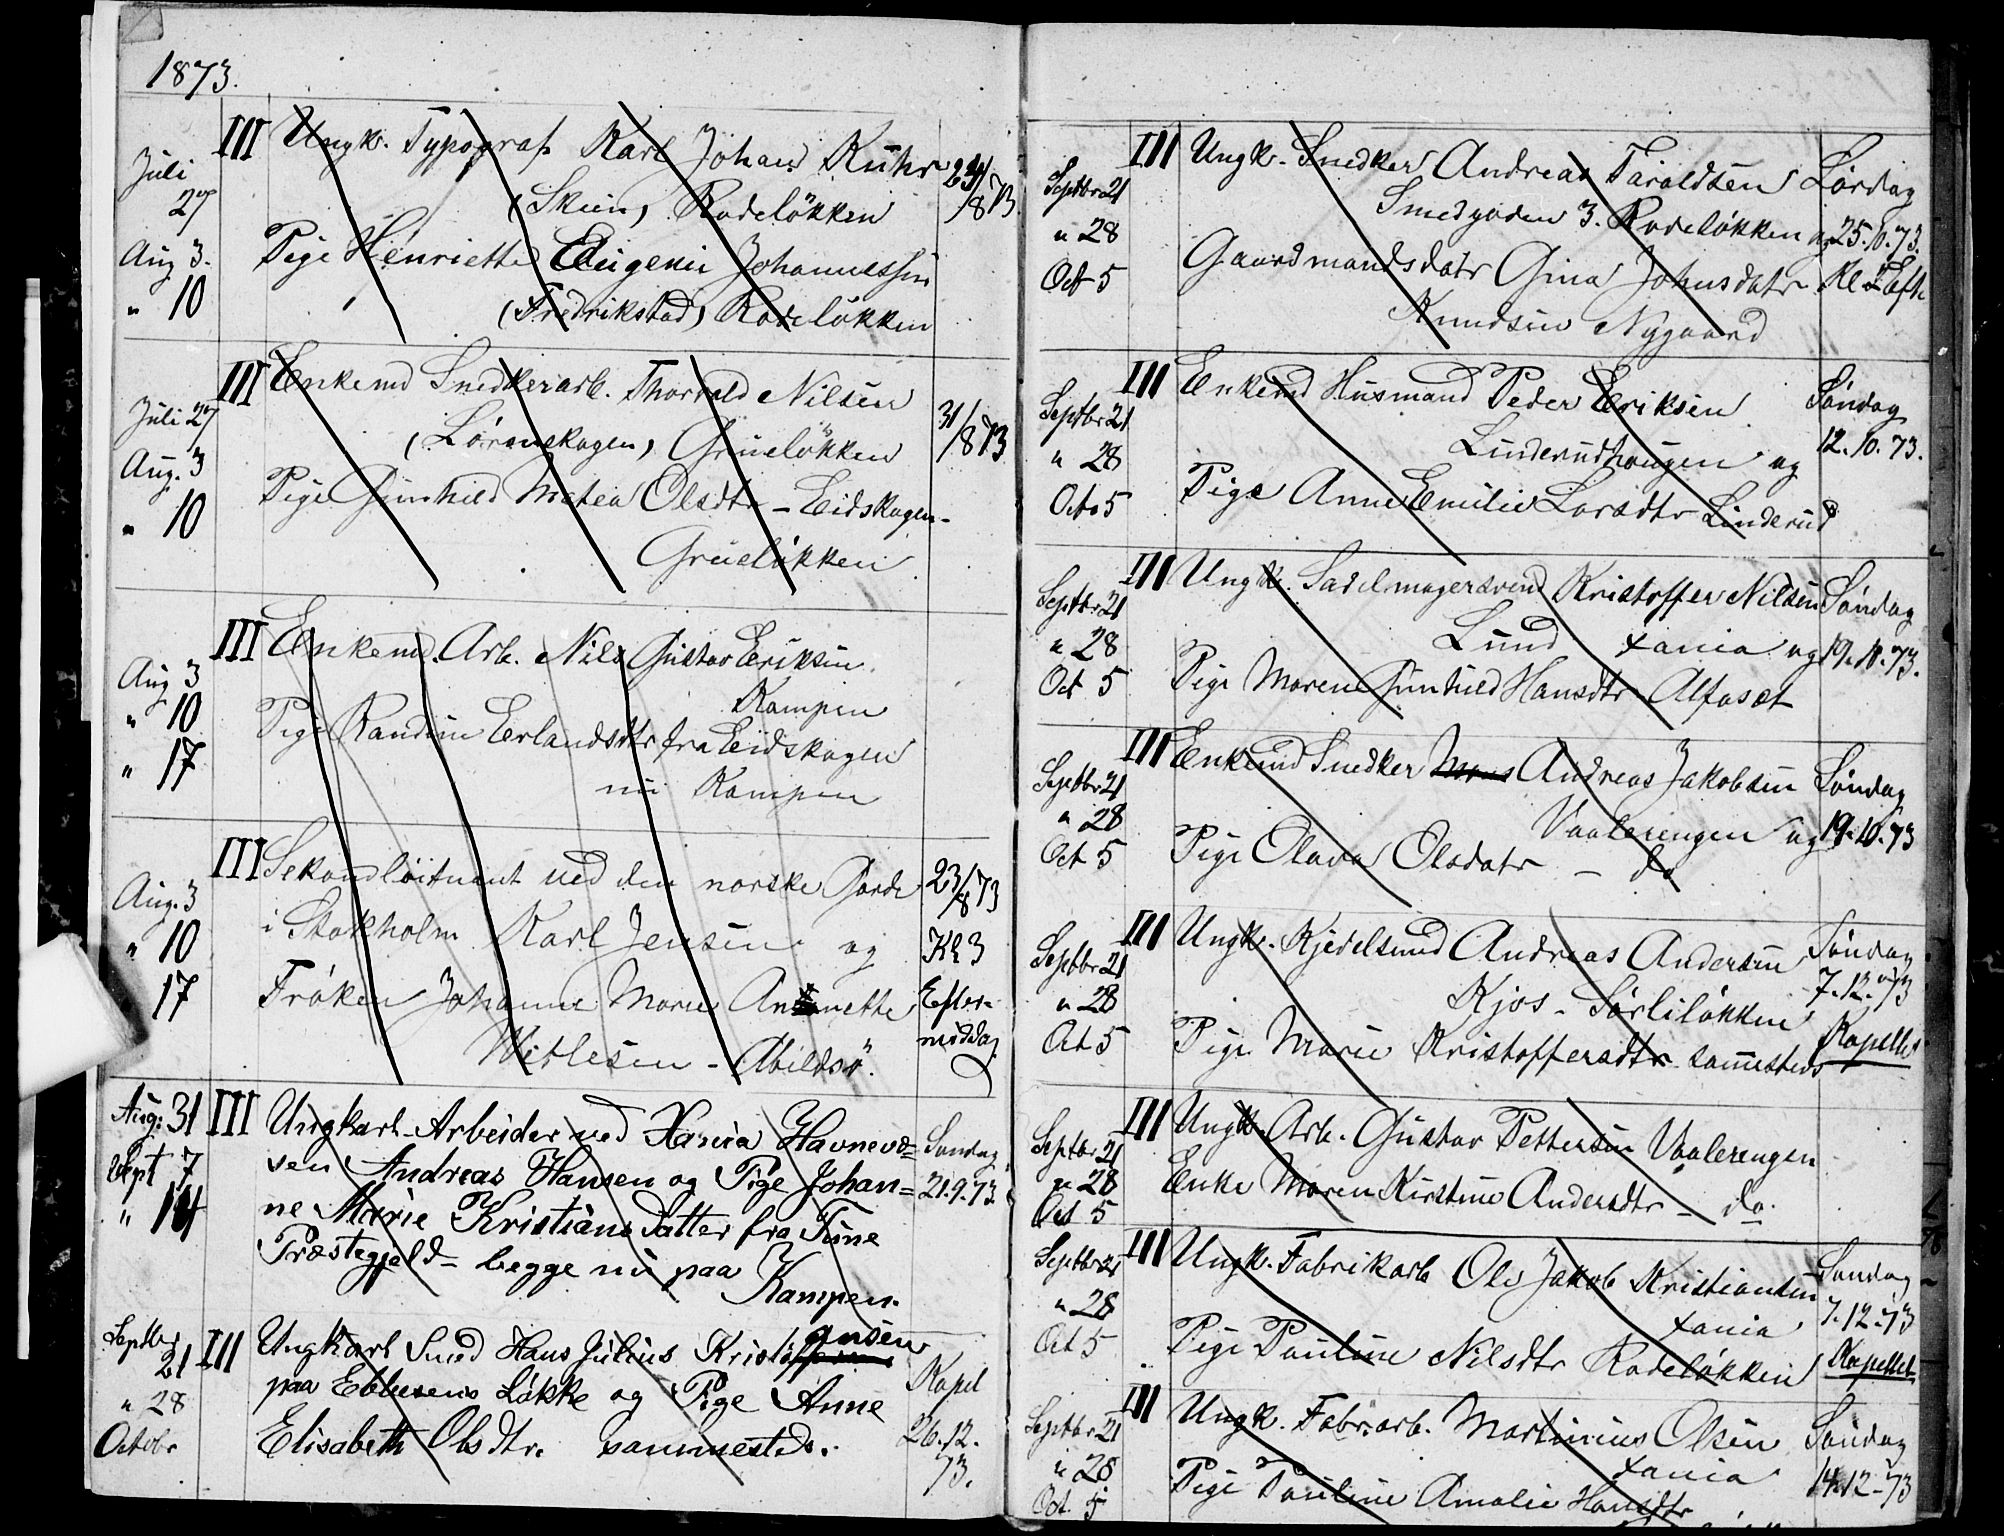 1873.
Juli 27 III Ungk. Typograf Karl Johan Kuhr 24/8 73
(Skien) Rodeløkken
Aug 3. Pige Henriette Eugenie Johannessen
" 10 (Fredrikstad) Rodeløkken
III Enkemd Snedkerarb. Thorvald Nilsen
Juli 27 (Lørenskogen) Grüneløkken 31/8 73
Aug. 3 Pige Gunhild Matea Olsdtr - Eidskogen -
" 10 Grüneløkken
III Enkemd. Arb. Nils Gustav Eriksen
Aug 3 Kampen
" 10 Pige Randine Erlandsdtr fra Eidskogen
" 17 nu Kampen
III Sekondløitnant ved den norske Garde 23/8 73
Aug. 3 i Stokholm Karl Jensen og Kl 3
" 10 Frøken Johanne Marie Antonette Efter-
17 Witlesen - Abildsö. middag
Aug: 31 III Ungkarl Arbeider ved Xania Havnevæ= Søndag
Sept 7 sen Andreas Hansen og Pige Johan= 21.9.73
" 14 ne Marie Kristians Datter fra Tune
Præstegjeld - begge nu paa
Kampen.
Septbr 21 III Ungkarl Smed Hans Julius Kristiansen Kapel
" 28 paa Ebbesens Løkke og Pige Anne 26.12.
Octobr Elisabeth Olsdtr. sammesteds. 73.
III Ungk. Snedker Andreas Taraldsen Lørdag
Septbr 21 Smedgaden 3. Rodeløkken og 25.10.73.
" 28 Gaardmandsdatr Gina Johnsdatr Kl Eft
Oct 5 Knudsen Nygaard
III Enkemd Husmand Peder Eriksen Søndag
Septbr 21 Linderudhaugen og 12.10.73.
" 28 Pige Anne Emilie Larsdtr Linderud
Oct 5
III Ungk. Sadelmagersvend Kristoffer Nilsen Søndag
Septbr 21 Lund xania og 19.10.73.
" 28 Pige Maren Gunhild Hansdtr Alfaset
Oct 5
III Enkemd Snedker Andreas Jakobsen Søndag
Septbr 21 Vaalerengen og 19.10.73
" 28 Pige Olava Olsdatr - do
Oct 5
III Ungk. Kjedelsmed Andreas Andersen Søndag
Septbr 21 Kjos - Sørliløkken 7.12.73
" 28 Pige Marie Kristoffersdtr sammesteds Kapellet
Oct 5
III Ungk. Arb. Gustav Pettersen Vaalerengen
Septbr 21 Enke Maren Kirstine Andersdtr - do.
" 28
Oct 5
III Ungk. Fabrikarb Ole Jakob Kristiansen Søndag
Septbr 21 xania 7.12-73
" 28 Pige Pauline Nilsdtr Rodeløkken Kapellet
Oct 5
III Ungk. Fabr.arb. Martinius Olsen Søndag
Septbr 21 xania 14.12-73
" 28 Pige Pauline Amalie Hansdtr
Oct. 5